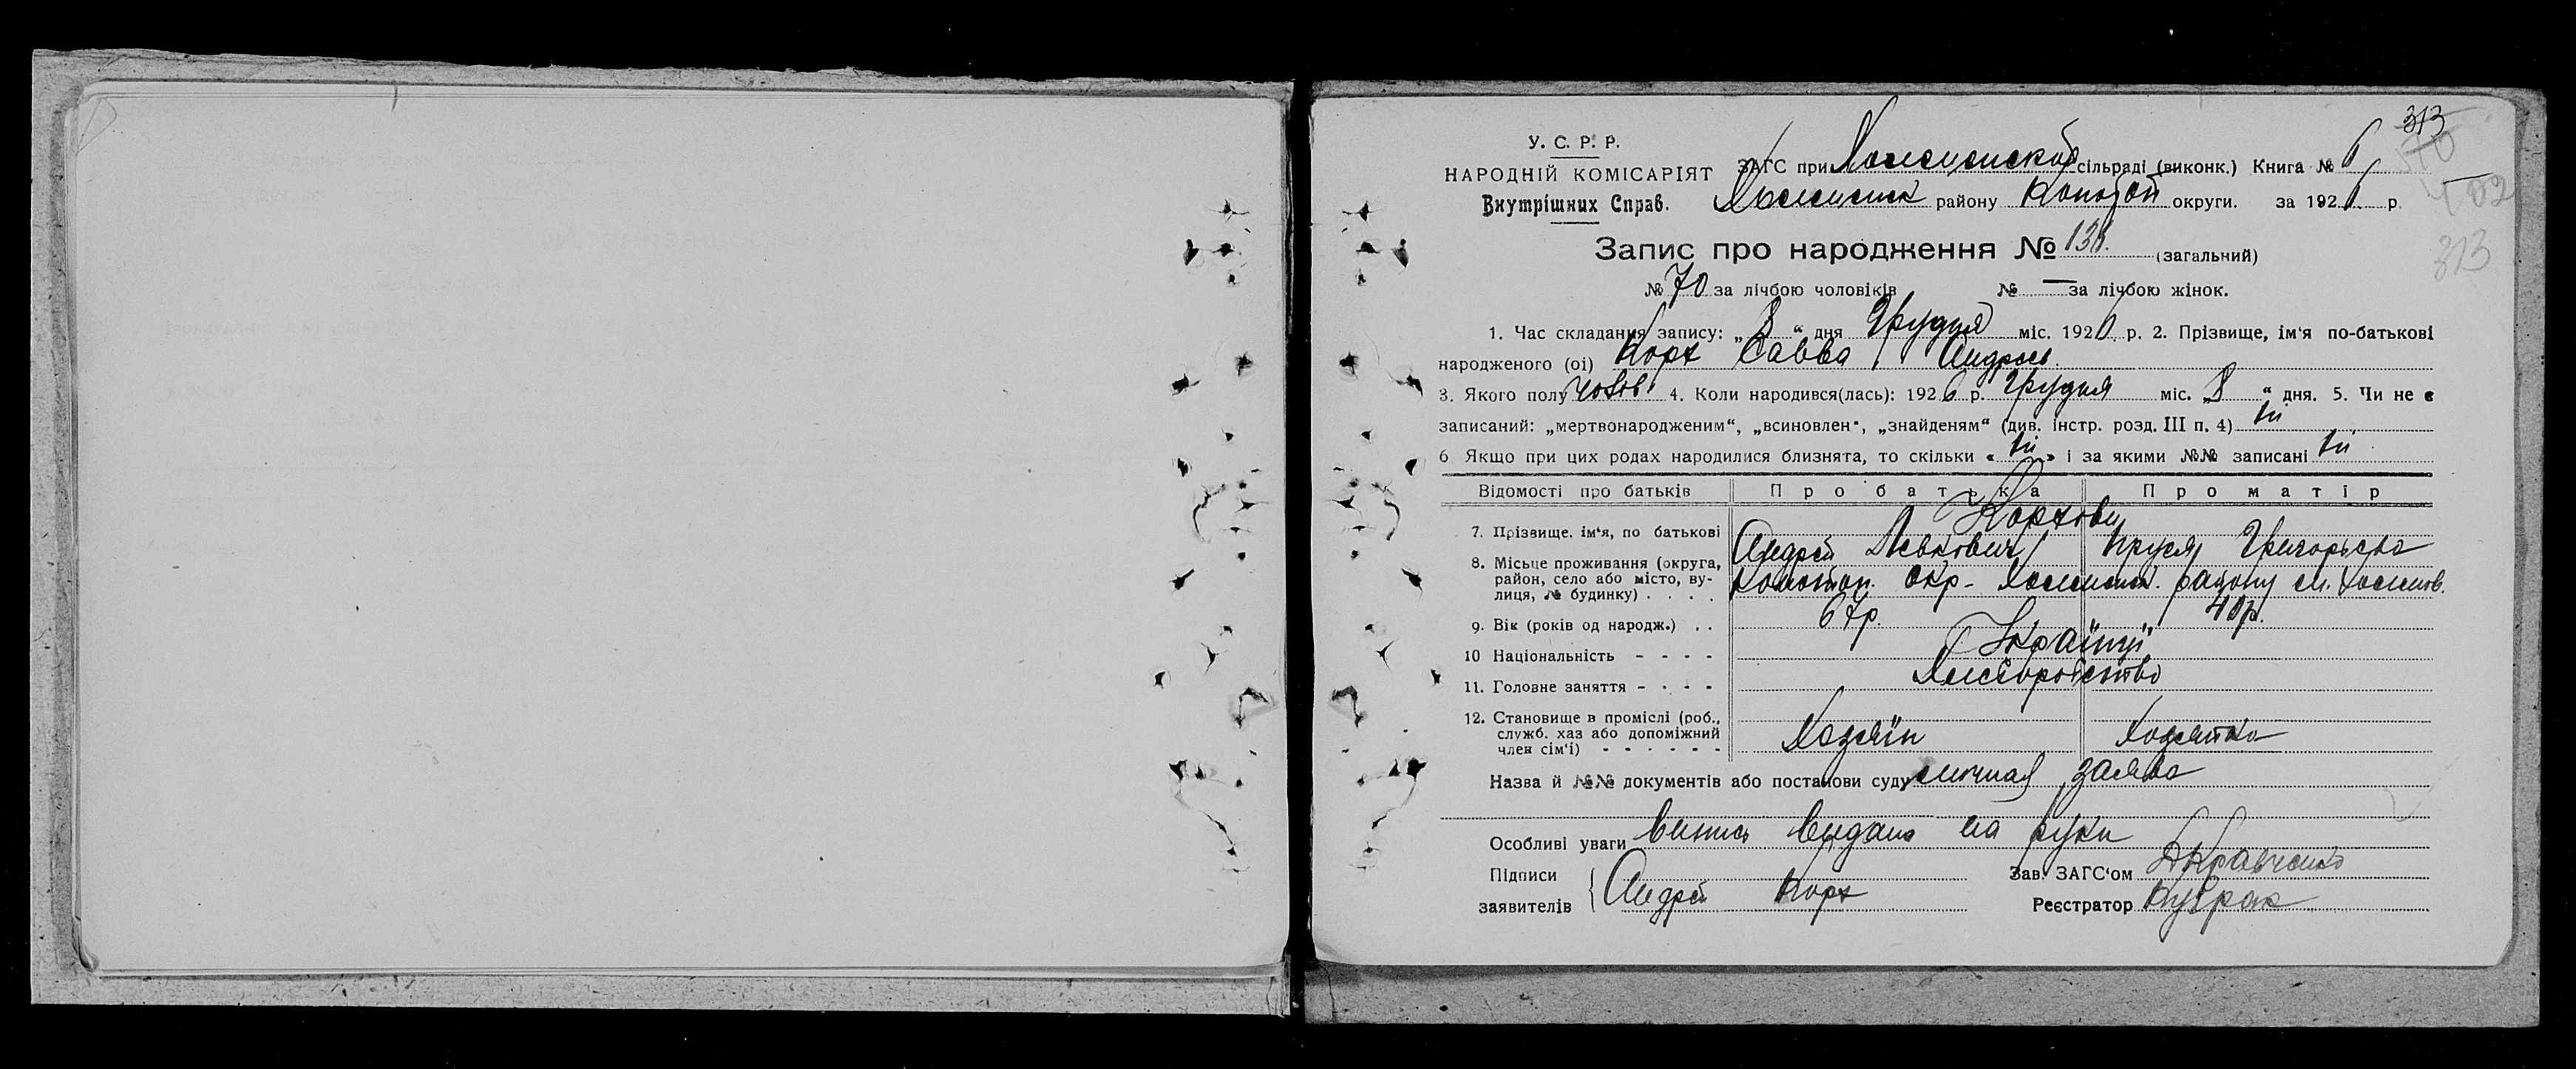 313
У. С. Р. Р.
НАРОДНІЙ КОМІСАРІЯТ
Внутрішних Справ.
ЗАГС при сільраді (виконк.) Книга № 6
району Коното́п округи. за 1926 р.
402
313
Запис про народження № 136. (загальний)
№ 70 за лічбою чоловіків № — за лічбою жінок.
1. Час складання запису: „ 8 “ дня Грудня міс. 1926 р. 2. Прізвище, ім‘я по-батькові
народженого (ої) Корж Савва Андреев.
3. Якого полу Чолов. 4. Коли народився(лась): 1926 р. Грудня міс. „ 8 “ дня. 5. Чи не є
записаний: „мертвонародженим“, „всиновлен“, „знайденям“ (див. інстр. розд. III п. 4) ні
6 Якщо при цих родах народилися близнята, то скільки « ні » і за якими №№ записані ні
Відомості про батьків Про батька Про матір
7. Прізвище, ім‘я, по батькові Коржови
Андрей Левкович Григорьевна
8. Місьце проживання (округа, район, село або місто, вулиця, № будинку) . . . . Конотоп. Окр- району
9. Вік (років од народж.) . . 67р. 40р.
10 Національність - - - - Українці
11. Головне заняття - - - - Хлеборобство
12. Становище в проміслі (роб., служб. хаз або допоміжний член сім‘ї) - - - - - - Хозяїн Хозяйка
Назва й №№ документів або постанови суду личная заява
Особливі уваги Випись видана на руки
Підписи заявителів { Андрей Корж
Зав. ЗАГС‘ом Кравченко
Реєстратор Кубрак